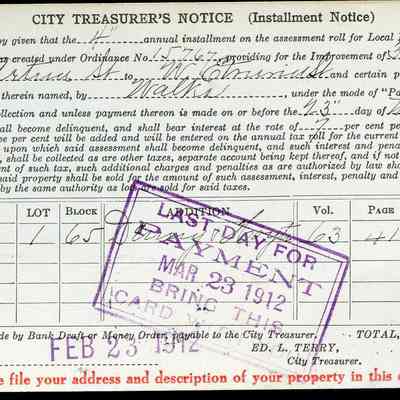 CITY TREASURER'S NOTICE (Installment Notice)
by given that the 4" annual installment on the assessment roll for Local
as created under Ordinance No. 15767, providing for the Improvement of
St. to W. Edmunds and certain
therein named, by Walks, under the mode of "Pa
collection and unless payment thereon is made on or before the 23" day of
all become delinquent, and shall bear interest at the rate of per cent pe
be per cent will be added and will be entered on the annual tax roll for the current
upon which said assessment shall become delinquent, and such interest and pena
, shall be collected as are other taxes, separate account being kept thereof, and if not
ent of such tax, such additional charges and penalties as are authorized by law sha
said property shall be sold for the amount of such assessment, interest, penalty and
by the same authority as lots are sold for said taxes.
LOT BLOCK ADDITION VOL. PAGE
1 65 63 41
LAST DAY FOR
PAYMENT
MAR 23 1912
BRING THIS
CARD
de by Bank Draft or Money Order, payable to the City Treasurer. TOTAL,
FEB 23 1912
ED. L. TERRY,
City Treasurer.
e file your address and description of your property in this